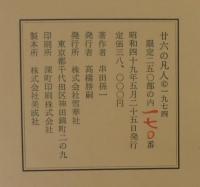 廿六の凡人©一九七四
限定二五〇部の内一七〇番
昭和四十九年五月二十五日発行
定価三八、〇〇〇円
著作者 串田孫一
発行者 高橋勝嗣
発行所 株式会社雪華社
東京都千代田区神田錦町二の九
印刷所 深町印刷株式会社
製本所 株式会社美成社